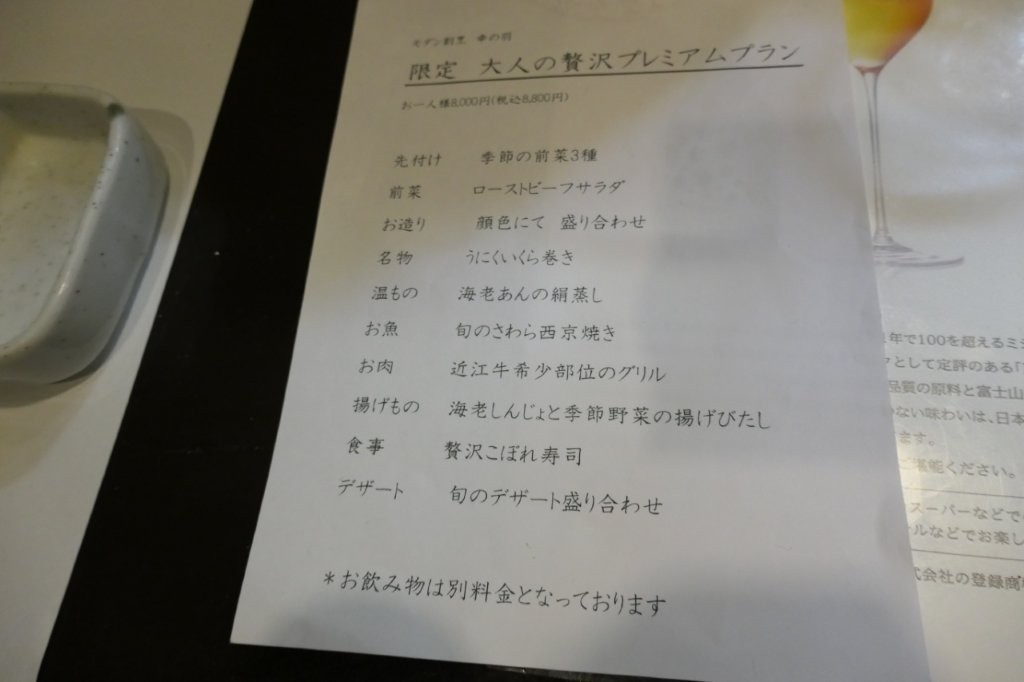 モダン割烹 幸の羽
限定 大人の贅沢プレミアムプラン
お一人様8,000円(税込8,800円)
先付け 季節の前菜3種
前菜 ローストビーフサラダ
お造り 顔色にて 盛り合わせ
名物 うにくいくら巻き
温もの 海老あんの絹蒸し
お魚 旬のさわら西京焼き
お肉 近江牛希少部位のグリル
揚げもの 海老しんじょと季節野菜の揚げびたし
食事 贅沢こぼれ寿司
デザート 旬のデザート盛り合わせ
*お飲み物は別料金となっております
年で100を超えるミシ
クとして定評のある「
品質の原料と富士山
ない味わいは、日本
ます。
ご堪能ください。
スーパーなどで
ルなどでお楽し
式会社の登録商